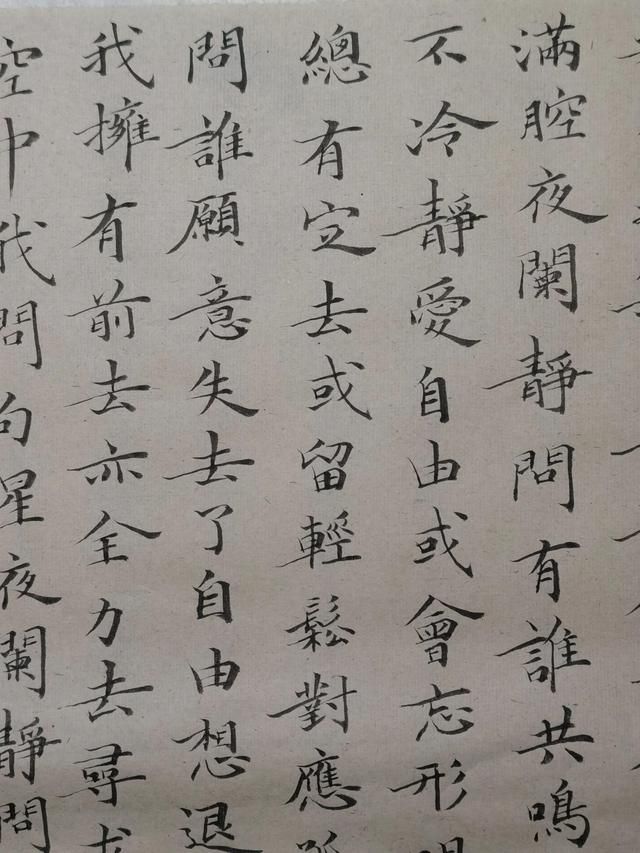 滿腔夜闌靜問有誰共鳴
不冷靜愛自由或會忘形
總有定去或留輕鬆對應
問誰願意失去了自由想退
我擁有前去亦全力去尋
空中我問句星夜闌靜問